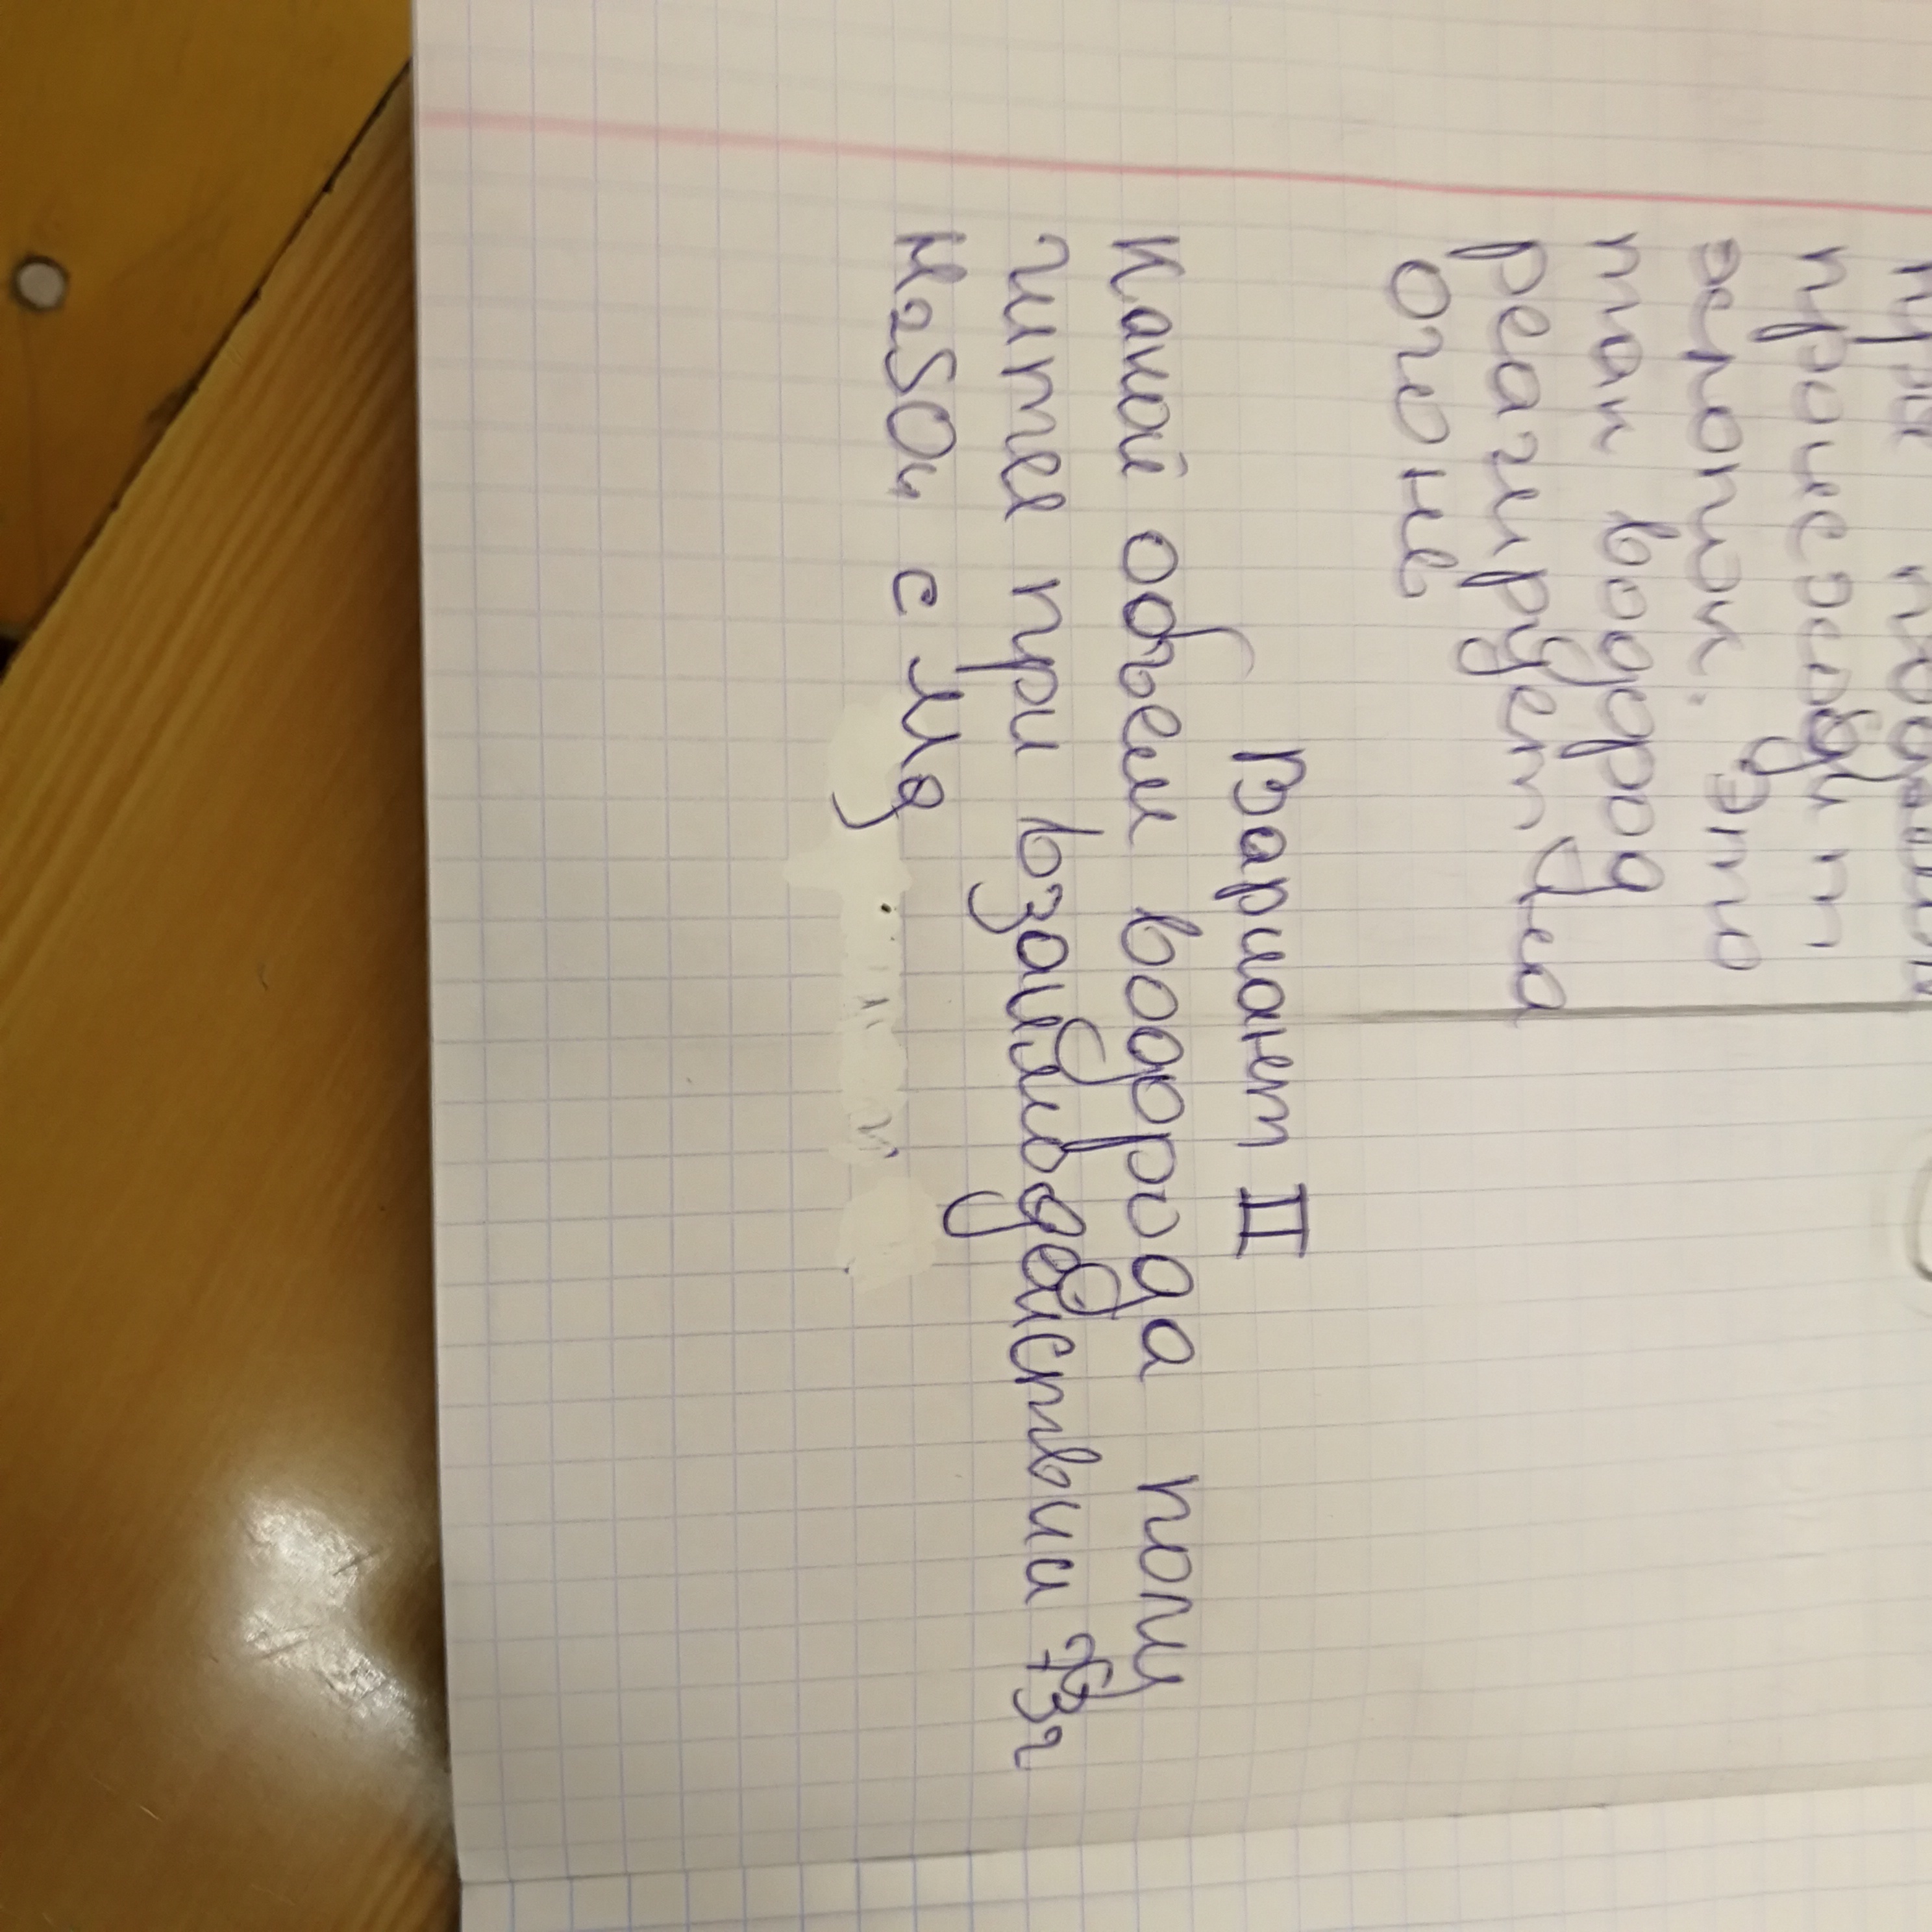 при
происходит
хлопок. Это
так водород
реагирует на
огонь
Вариант II
Какой объем водорода полу
чите при взаимодействии 73г
H₂SO₄ с Mg